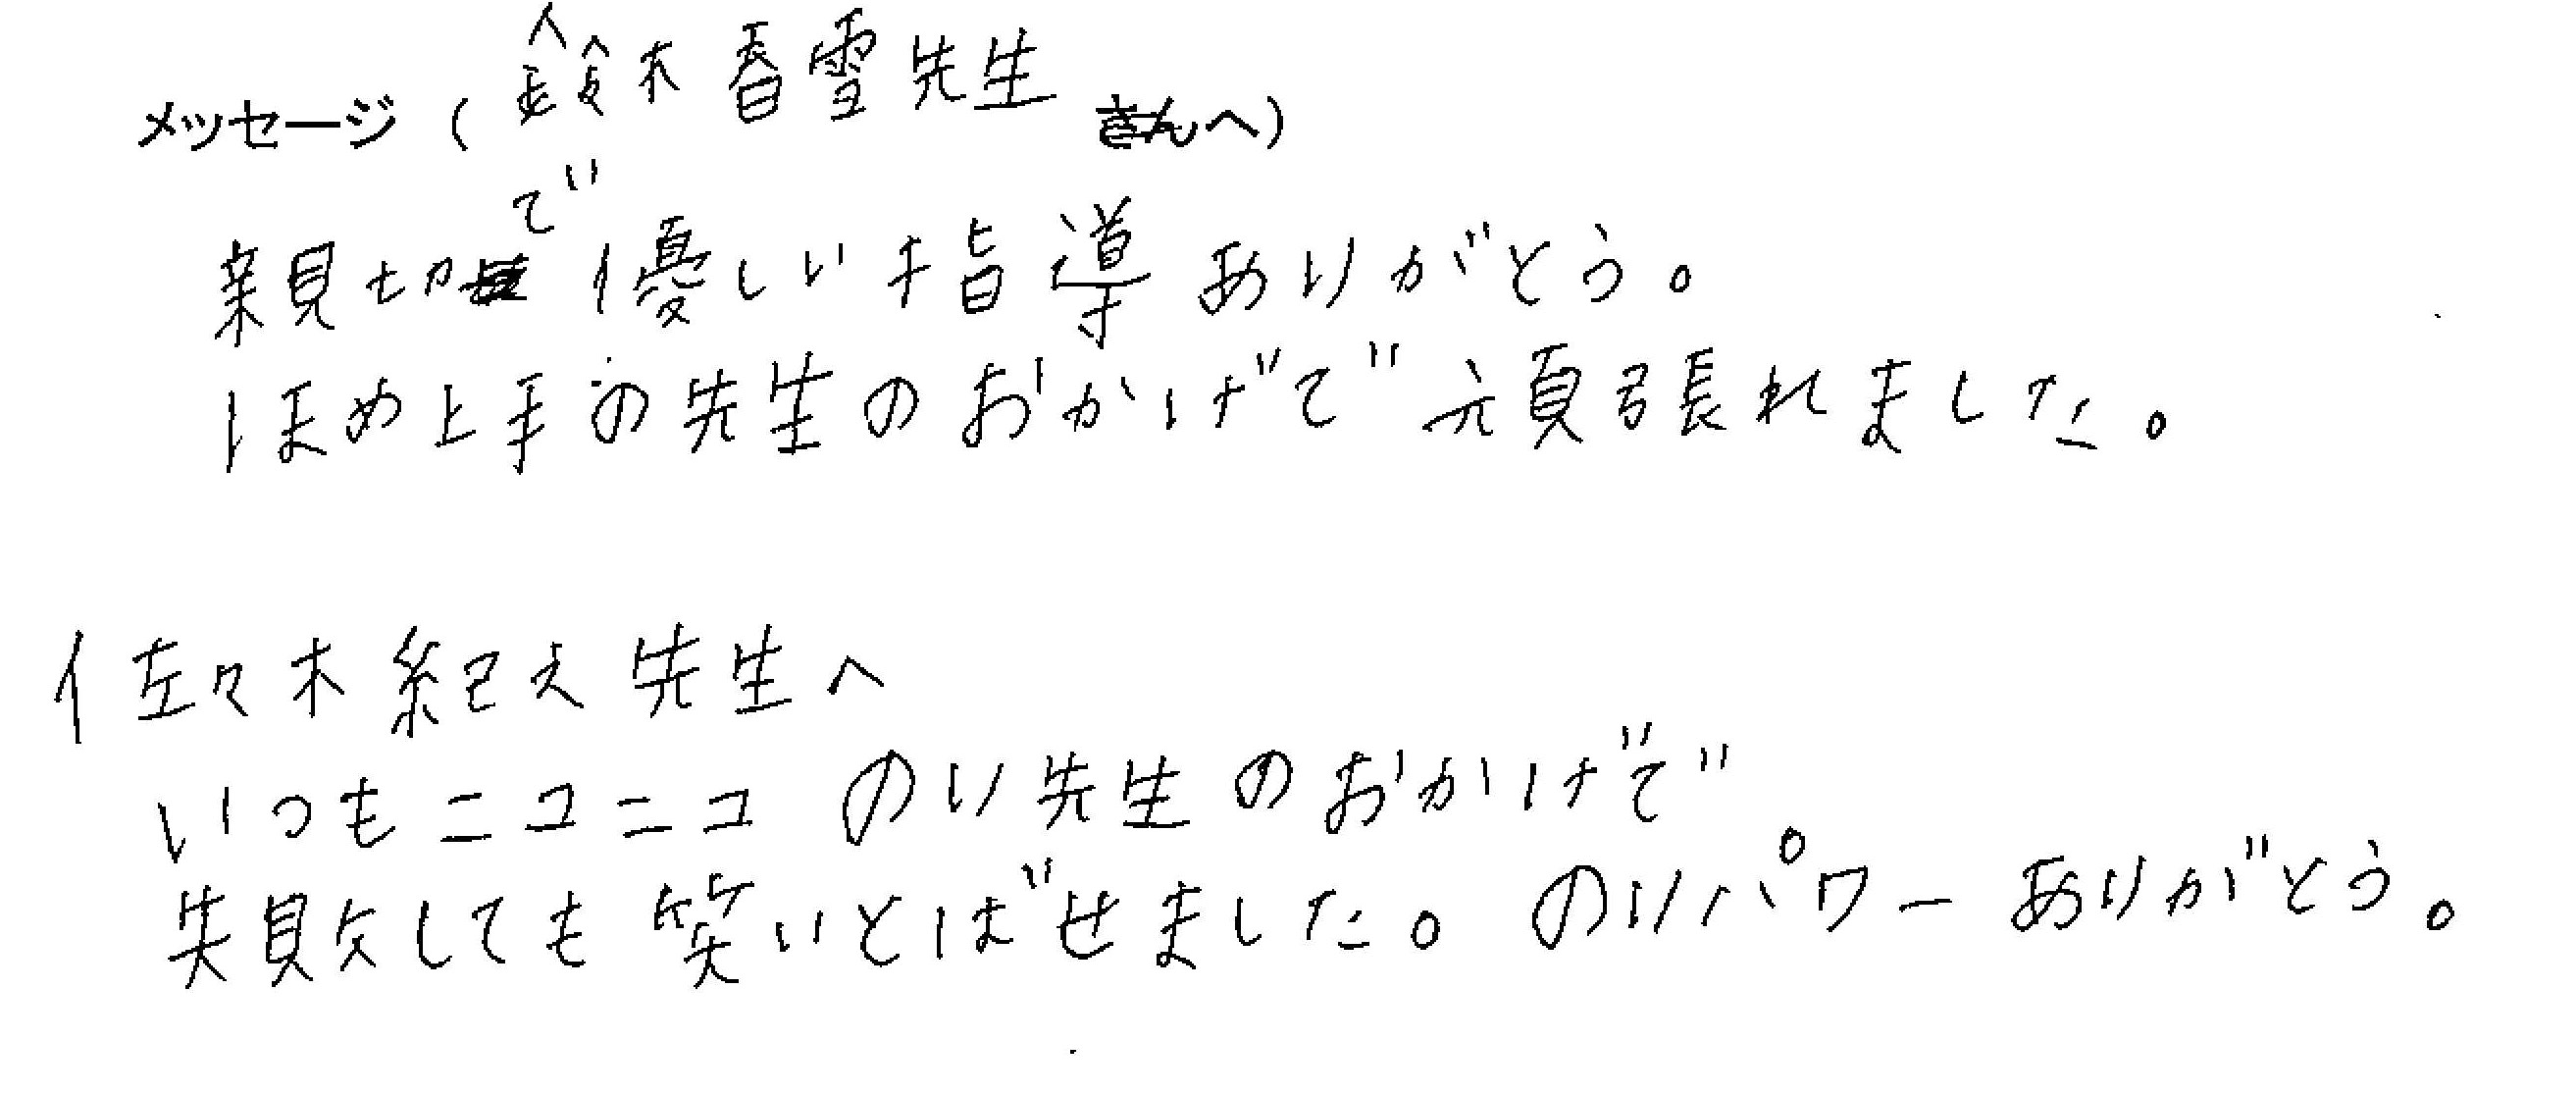 メッセージ（鈴木春雪先生へ）
親切で優しい指導ありがとう。
ほめ上手の先生のおかげで頑張れました。
佐々木紀え先生へ
いつもニコニコ のり先生のおかげで
失敗しても笑いとばせました。のりパワーありがとう。